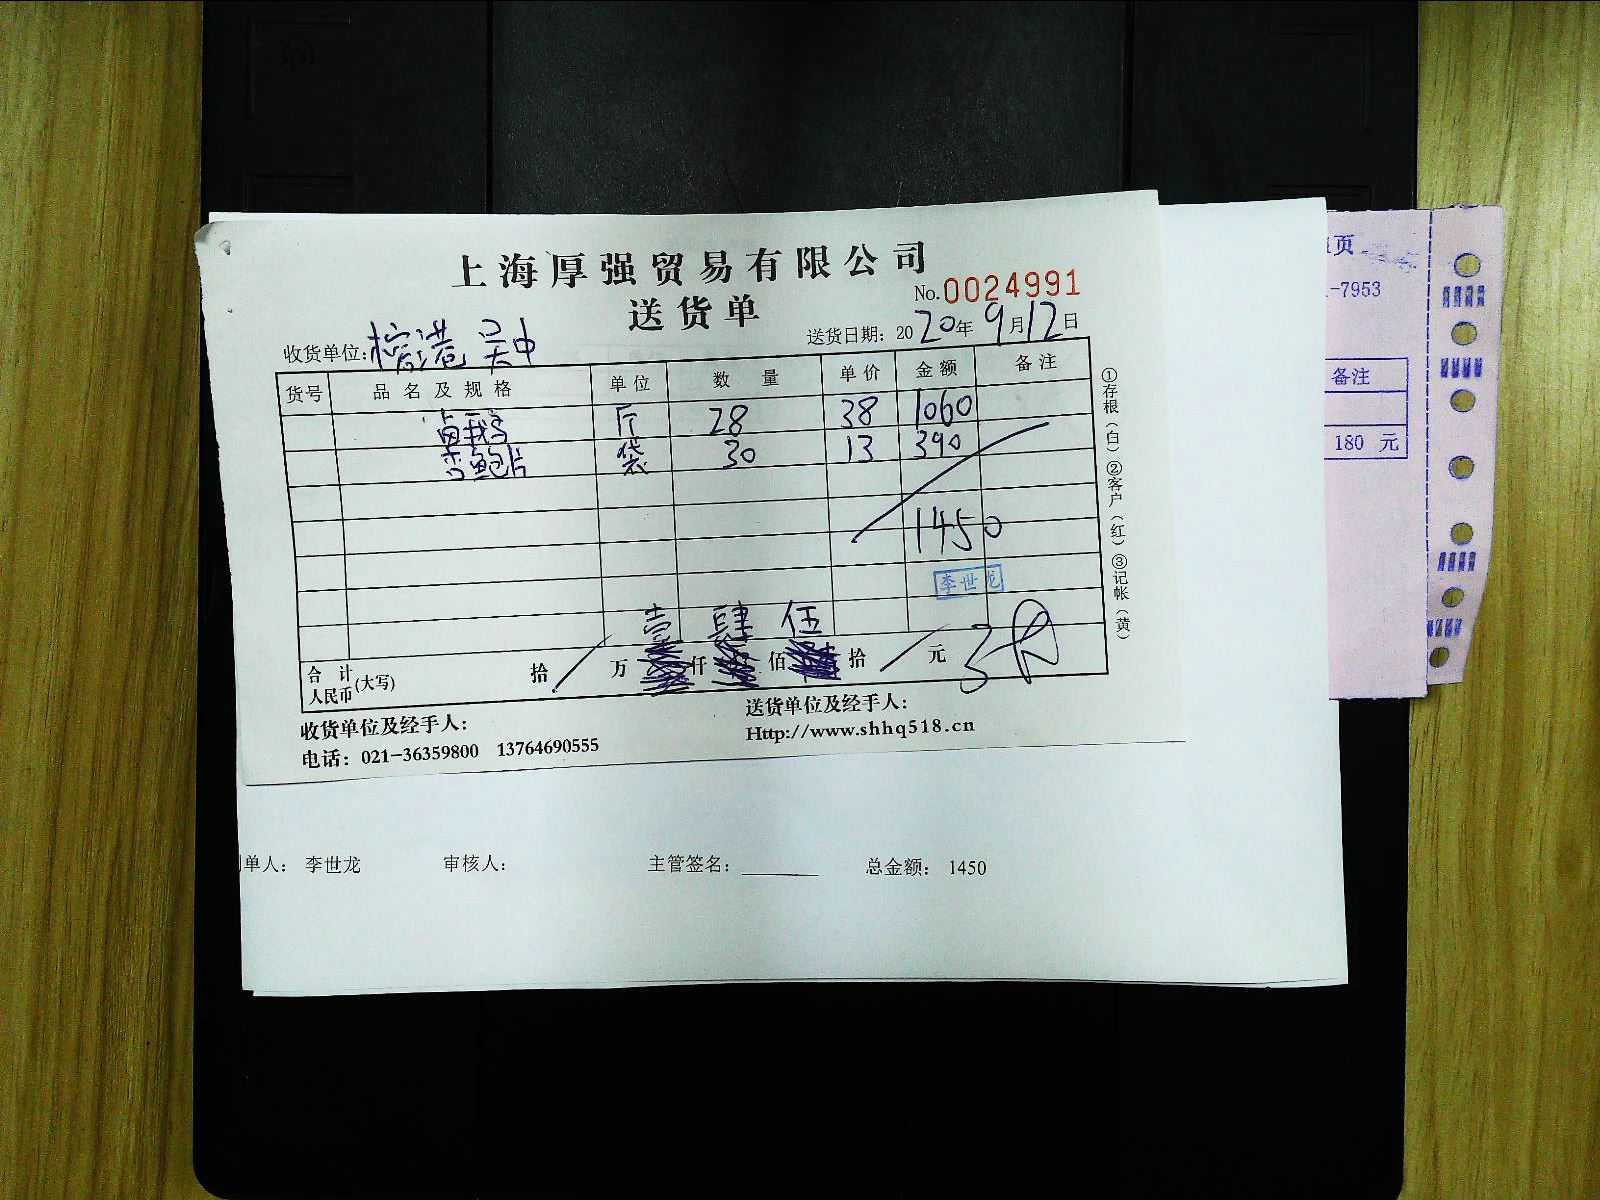 上海厚强贸易有限公司
No.0024991
送货单
收货单位: 榕港 吴中
送货日期: 2020年9月12日
货号 品名及规格 单位 数量 单价 金额 备注
卤鹅 斤 28 38 1060
杏鲍片 袋 30 13 390
1450
李世龙
合计人民币(大写) 拾 万 壹仟 肆佰 伍拾 元
收货单位及经手人:
送货单位及经手人:
电话: 021-36359800 13764690555
Http://www.shhq518.cn
①存根(白)②客户(红)③记帐(黄)
单人: 李世龙 审核人: 主管签名: 总金额: 1450
页
-7953
备注
180 元